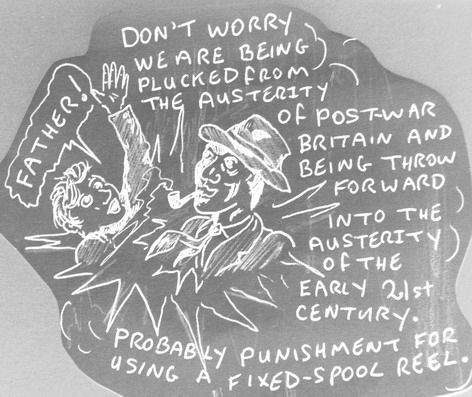 FATHER!
DON'T WORRY
WE ARE BEING
PLUCKED FROM
THE AUSTERITY
OF POST-WAR
BRITAIN AND
BEING THROW
FORWARD
INTO THE
AUSTERITY
OF THE
EARLY 21st
CENTURY.
PROBABLY PUNISHMENT FOR
USING A FIXED-SPOOL REEL.